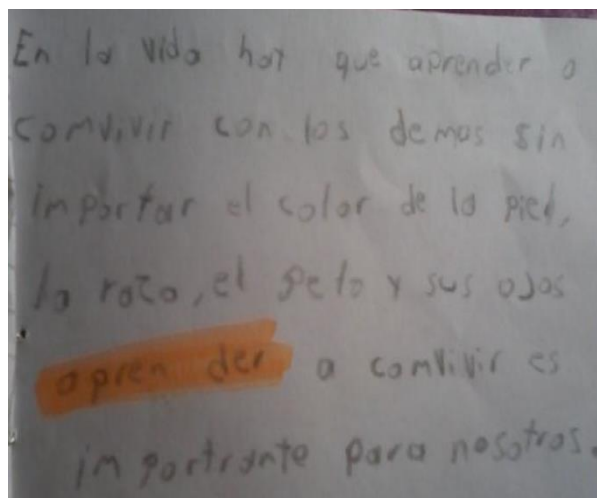 En la vida hay que aprender a
comvivir con los demas sin
importar el color de la piel,
la raza, el pelo y sus ojos
apren der a comvivir es
importrante para nosotros.